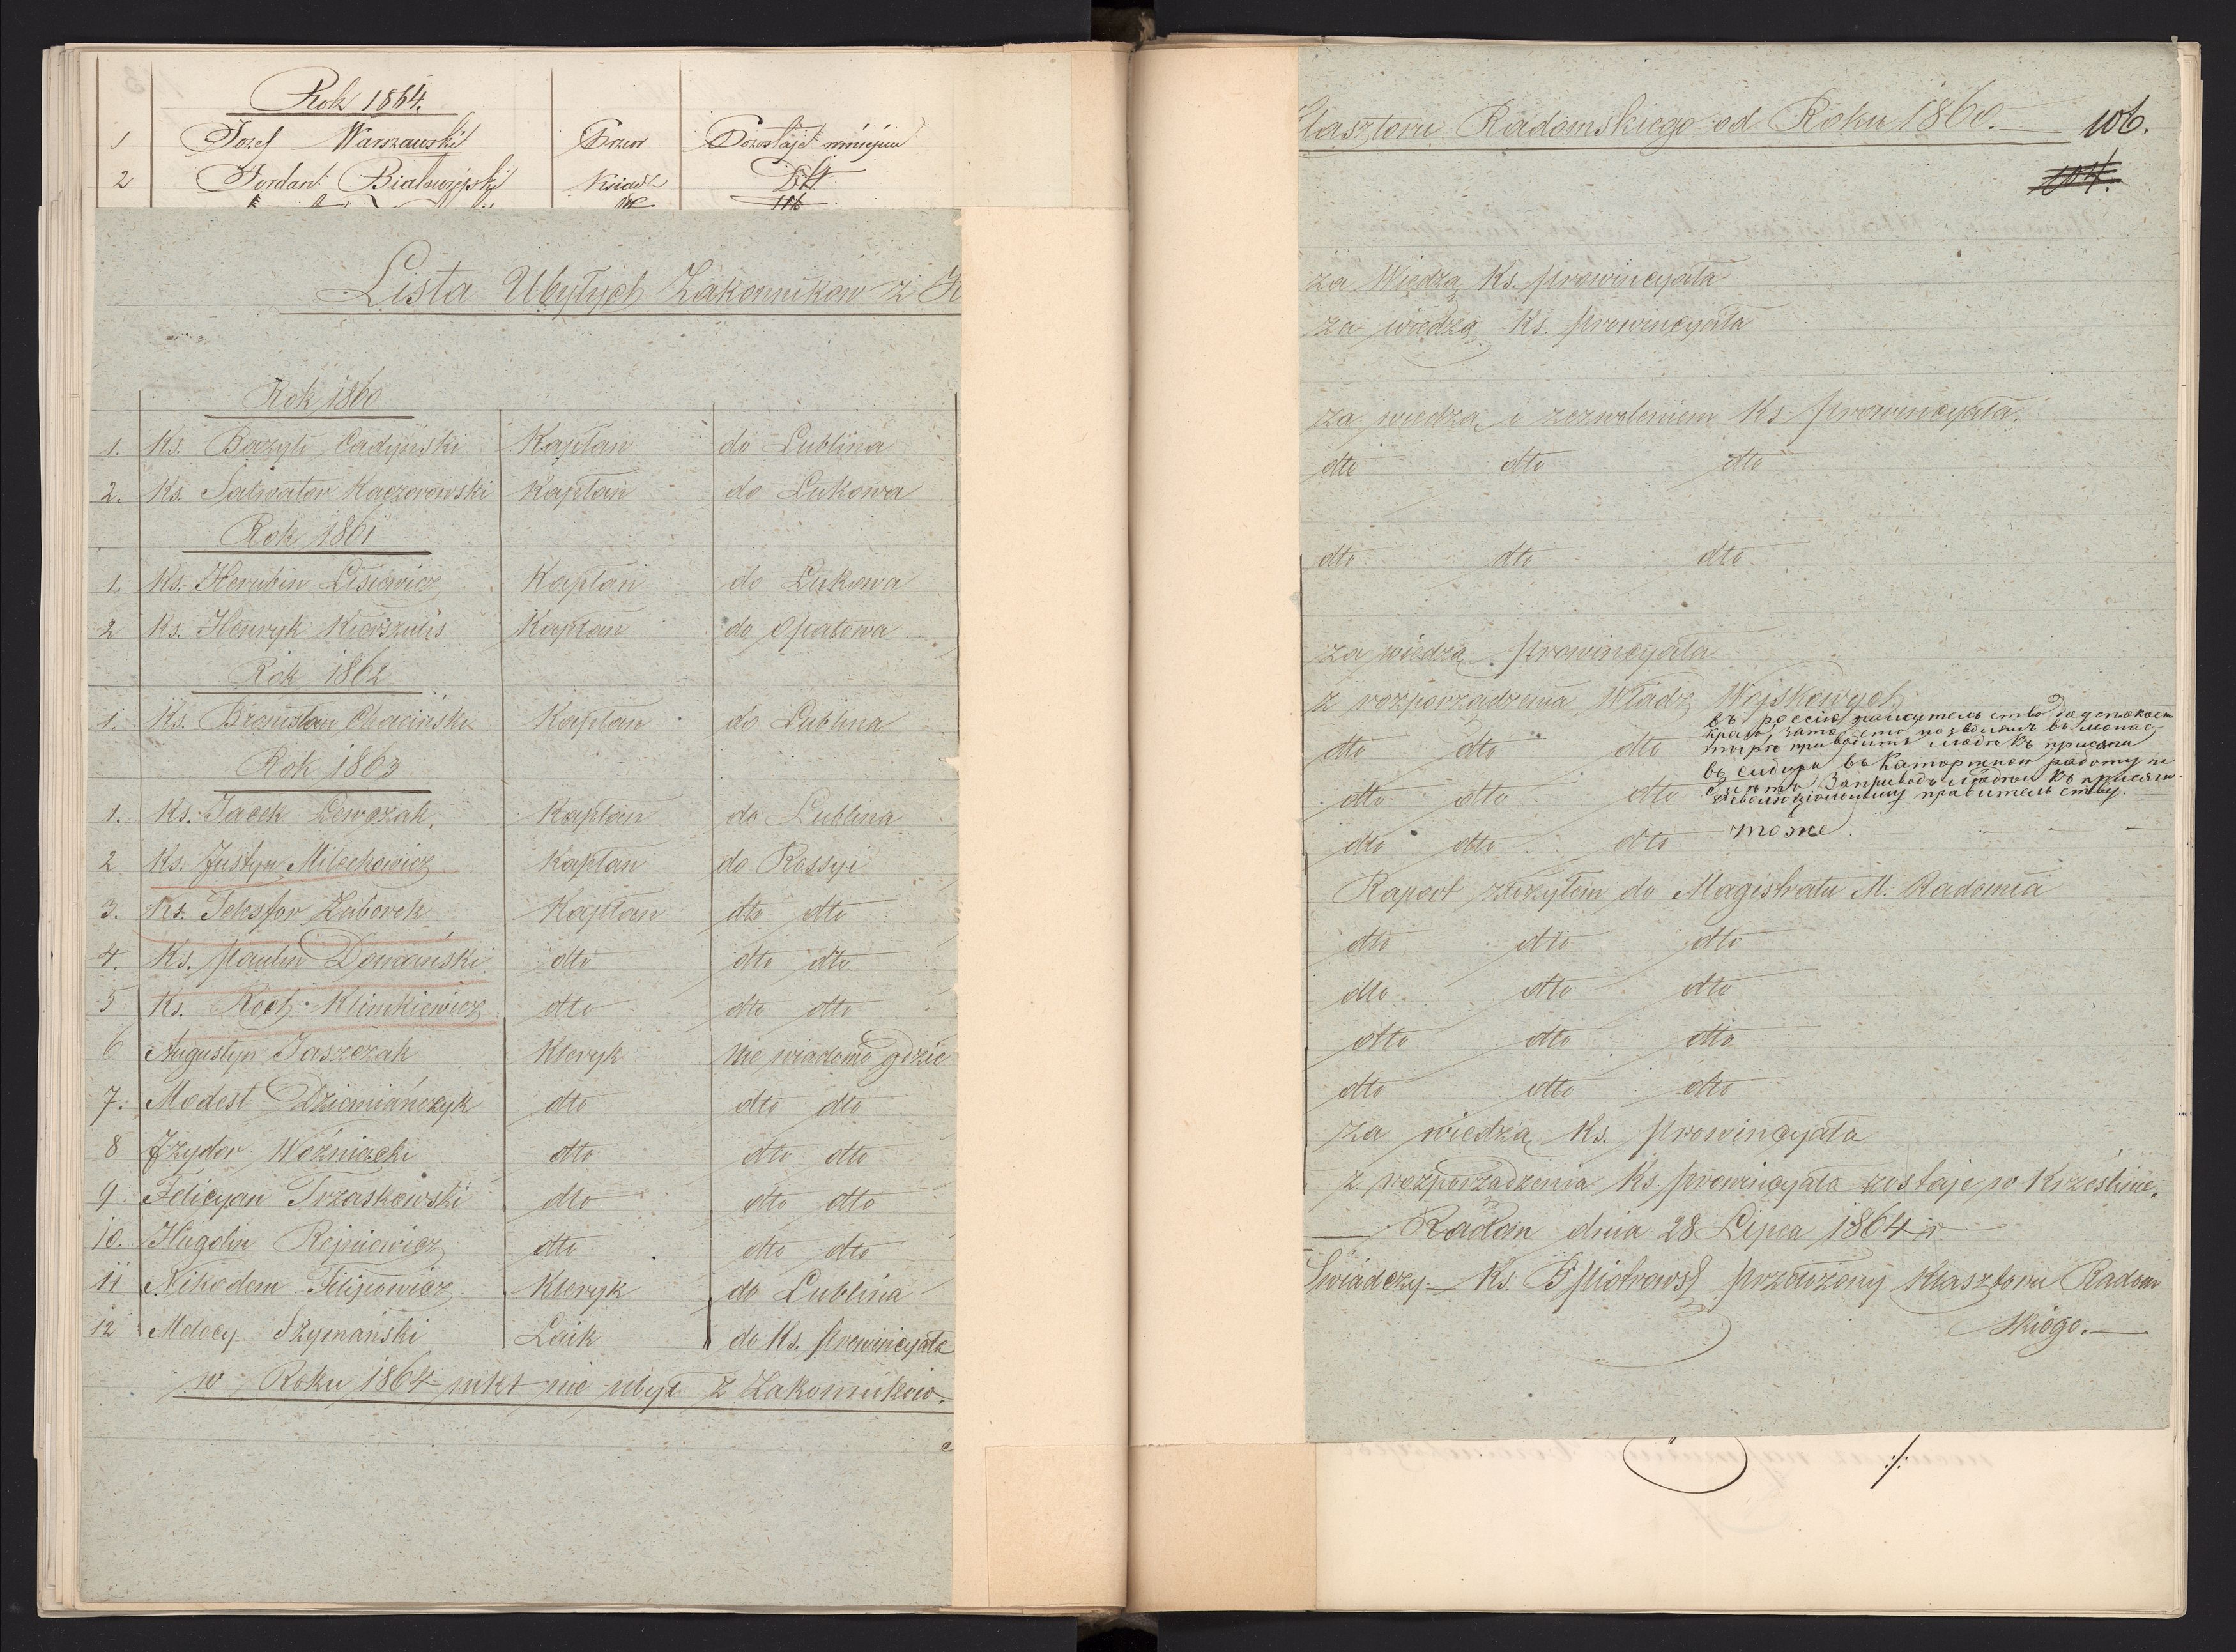 Rok 1864.
1 Jozef Warszawski Przeor Pozostaje w miejscu
2 Jordan Ksiądz Dtt
Lista Ubyłych Zakonnikow z K
Rok 1860
1. Ks. Bazyli Cadyński Kapłan do Lublina
2. Ks. Salwator Kaczorowski Kapłan do Łukowa
Rok 1861
1. Ks. Herubin Lisiewicz Kapłan do Łukowa
2 Ks. Henryk Kierszulis Kapłan do Opatowa
Rok 1862
1. Ks. Bronisław Chaciński Kapłan do Lublina
Rok 1863
1. Ks. Jacek Lewczak Kapłan do Lublina
2 Ks. Justyn Milechowicz Kapłan do Rossyi
3. Ks. Teksfor Zaborek Kapłan dto dto
4. Ks. Paulin Domański dto dto dto
5 Ks. Roch Klimkiewicz dto dto dto
6 Augustyn Jaszczak Kleryk nie wiadomo gdzie
7. Modest Dziemiańczyk dto dto dto
8 Jzydor Woźniacki dto dto dto
9 Felicyan Trzaskowski dto dto dto
10. Hugolin Rejniewicz dto dto dto
11 Nikodem Filipowicz Kleryk do Lublina
12 Szymański Laik do Ks. prowincyała
w Roku 1864 nikt nie ubył z Zakonników.
klasztoru Radomskiego od Roku 1860. 106.
104.
za Wiedzą Ks. prowincyała
za wiedzą Ks. prowincyała
za wiedzą i zezwoleniem Ks prowincyała.
dto dto dto
dto dto dto
za wiedzą prowincyała
z rozporządzenia Władz Wojskowych
въ россію
dto dto dto
приводить къ присяги
въ сибирь въ каторжною работу
dto dto dto къ присяги
правительству.
dto dto dto тоже
Raport złożyłem do Magistratu M. Radomia
dto dto dto
dto dto dto
dto dto dto
dto dto dto
za wiedzą Ks. prowincyała
z rozporządzenia Ks. prowincyała zostaje w Krześlinie.
Radom dnia 28 Lipca 1864 r
Świadczy Ks. B Piotrows przełożony Klasztoru Radom
skiego.